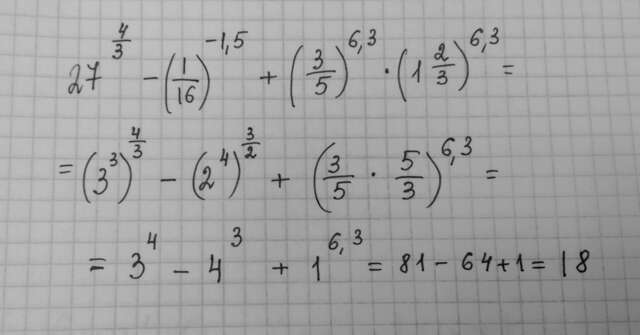 27^(4/3) − (1/16)^(−1,5) + (3/5)^(6,3) · (1 2/3)^(6,3) =
= (3^3)^(4/3) − (2^4)^(3/2) + (3/5 · 5/3)^(6,3) =
= 3^4 − 4^3 + 1^(6,3) = 81 − 64 + 1 = 18